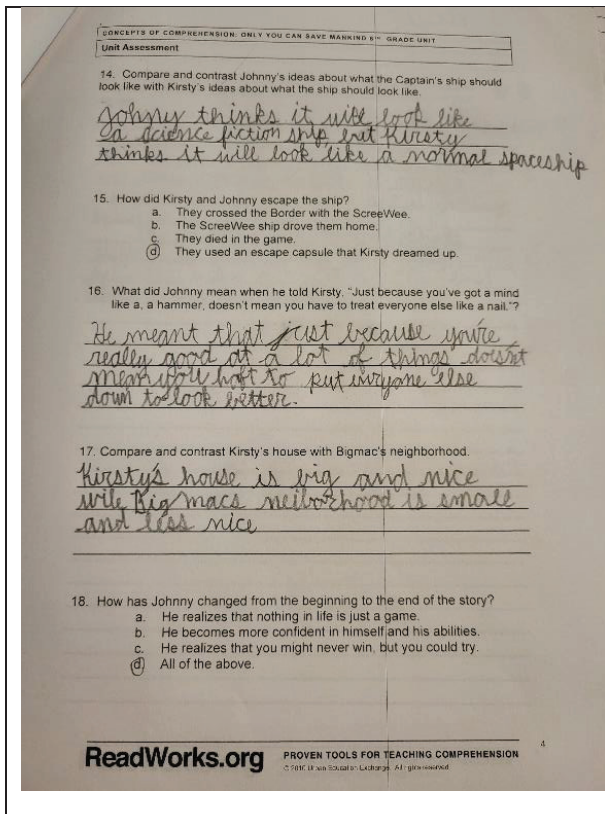 CONCEPTS OF COMPREHENSION: ONLY YOU CAN SAVE MANKIND 6TH GRADE UNIT
Unit Assessment
14. Compare and contrast Johnny's ideas about what the Captain's ship should
look like with Kirsty's ideas about what the ship should look like.
Johny thinks it will look like
a science fiction ship but Kirsty
thinks it will look like a normal spaceship
15. How did Kirsty and Johnny escape the ship?
a. They crossed the Border with the ScreeWee.
b. The ScreeWee ship drove them home.
c. They died in the game.
d They used an escape capsule that Kirsty dreamed up.
16. What did Johnny mean when he told Kirsty, "Just because you've got a mind
like a, a hammer, doesn't mean you have to treat everyone else like a nail."?
He meant that just because you're
really good at a lot of things doesn't
mean you haft to put evryone else
down to look better.
17. Compare and contrast Kirsty's house with Bigmac's neighborhood.
Kirsty's house is big and nice
wile Big macs neiborhood is small
and less nice
18. How has Johnny changed from the beginning to the end of the story?
a. He realizes that nothing in life is just a game.
b. He becomes more confident in himself and his abilities.
c. He realizes that you might never win, but you could try.
d All of the above.
4
ReadWorks.org PROVEN TOOLS FOR TEACHING COMPREHENSION
© 2010 Urban Education Exchange. All rights reserved.